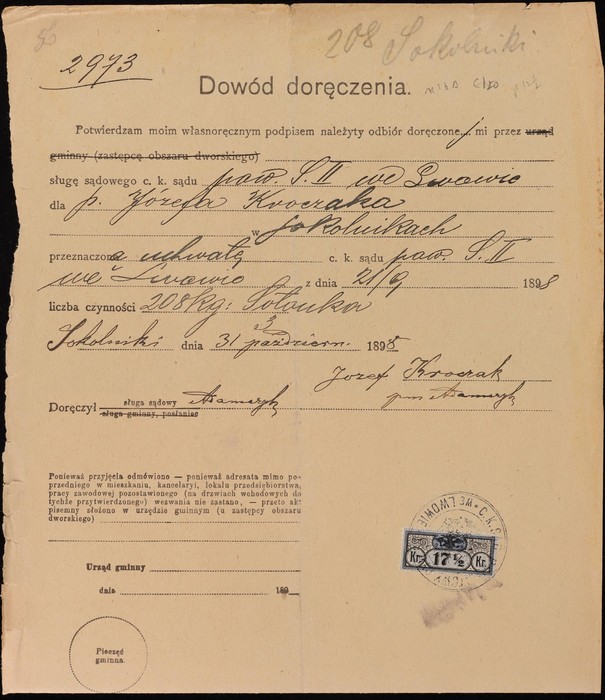 208 Sokolniki
2973
Dowód doręczenia.
Potwierdzam moim własnoręcznym podpisem należyty odbiór doręczone j mi przez urząd
gminny (zastępcę obszaru dworskiego)
sługę sądowego c. k. sądu pow. S. II we Lwowie
dla p. Józefa Kroczaka
w Sokolnikach
przeznaczoną uchwałę c. k. sądu pow. S. II
we Lwowie z dnia 21/9 1898
liczba czynności 208 kg: Sołonka
Sokolniki dnia 31 październ. 1898
Jozef Kroczak
Doręczył sługa sądowy Adamczyk
sługa gminny, posłaniec
Adamczyk
Ponieważ przyjęcia odmówiono — ponieważ adresata mimo po-
przedniego w mieszkaniu, kancelaryi, lokalu przedsiębiorstwa,
pracy zawodowej pozostawionego (na drzwiach wchodowych do
tychże przytwierdzonego) wezwania nie zastano, — przeto akt
pisemny złożono w urzędzie gminnym (u zastępcy obszaru
dworskiego)
Urząd gminny
dnia 189
Pieczęć
gminna.
C. K. WE LWOWIE
Kr. 17 ½ Kr.